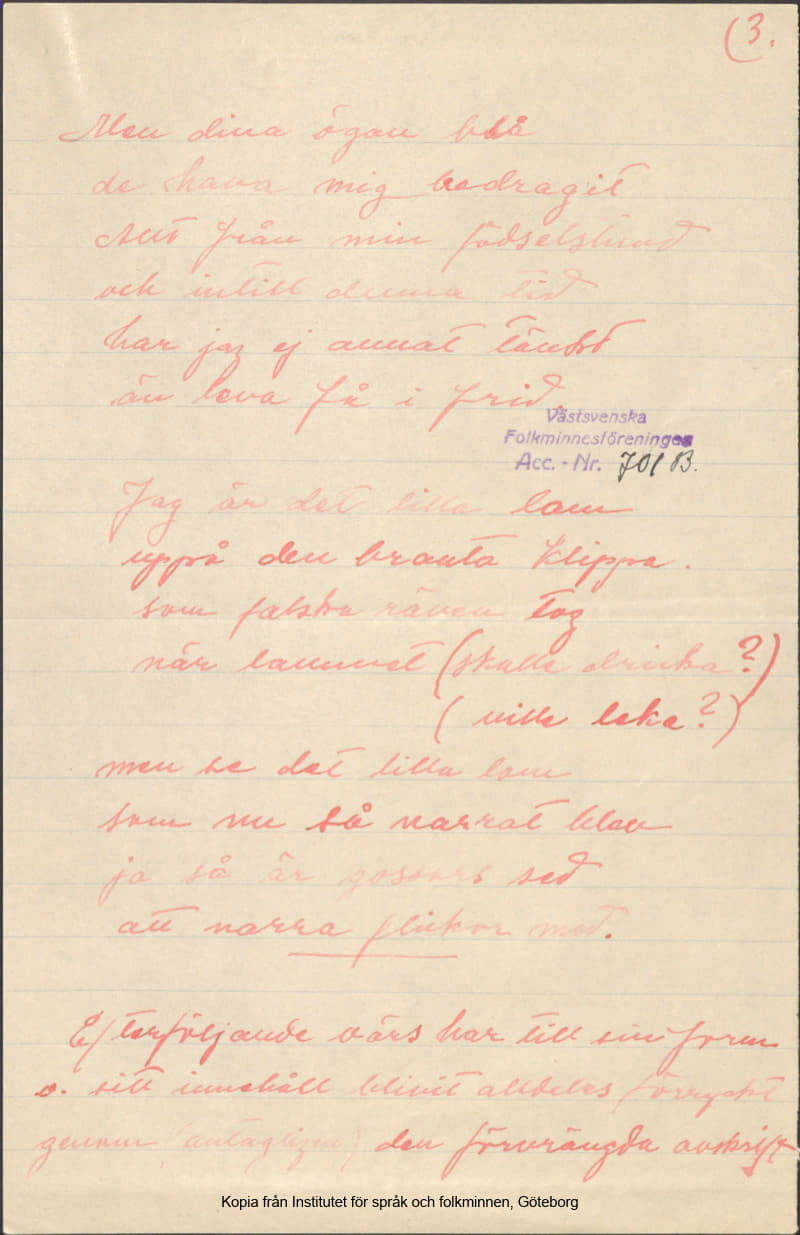 (3.
Men dina ögon blå
de hava mig bedragit
Allt från min födselstund
och intill denna tid
har jag ej annat tänkt
än leva få i frid
Västsvenska
Folkminnesföreningen
Acc. - Nr. 701 B.
Jag är det lilla lam
uppå den branta klippa.
som falska räven tog
när lammet (skulle dricka?)
(ville leka?)
men se det lilla lam
som nu så narrat blev
ja så är gossars sed
att narra flickor med.
Efterföljande värs har till sin form
o. sitt innehåll blivit alldeles förryckt
genom (antagligen) den förvrängda avskrift
Kopia från Institutet för språk och folkminnen, Göteborg